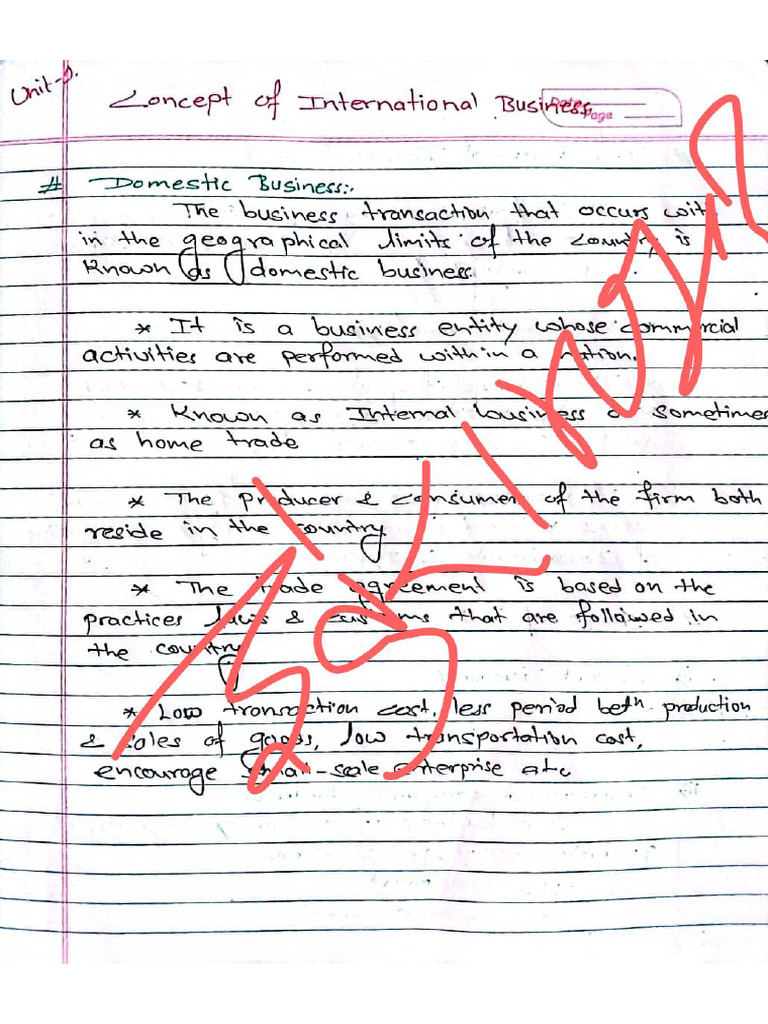 Unit-1.
Concept of International Business.
Date
Page
# Domestic Business:.
The business transaction that occurs with
in the geographical limits of the country is
known as domestic business.
* It is a business entity whose commercial
activities are performed within a nation.
* Known as Internal business or sometimes
as home trade
* The producer & consumer of the firm both
reside in the country.
* The trade agreement is based on the
practices laws & customs that are followed in
the country
* Low transaction cost, less period betn production
& sales of goods, low transportation cost,
encourage small-scale enterprise etc